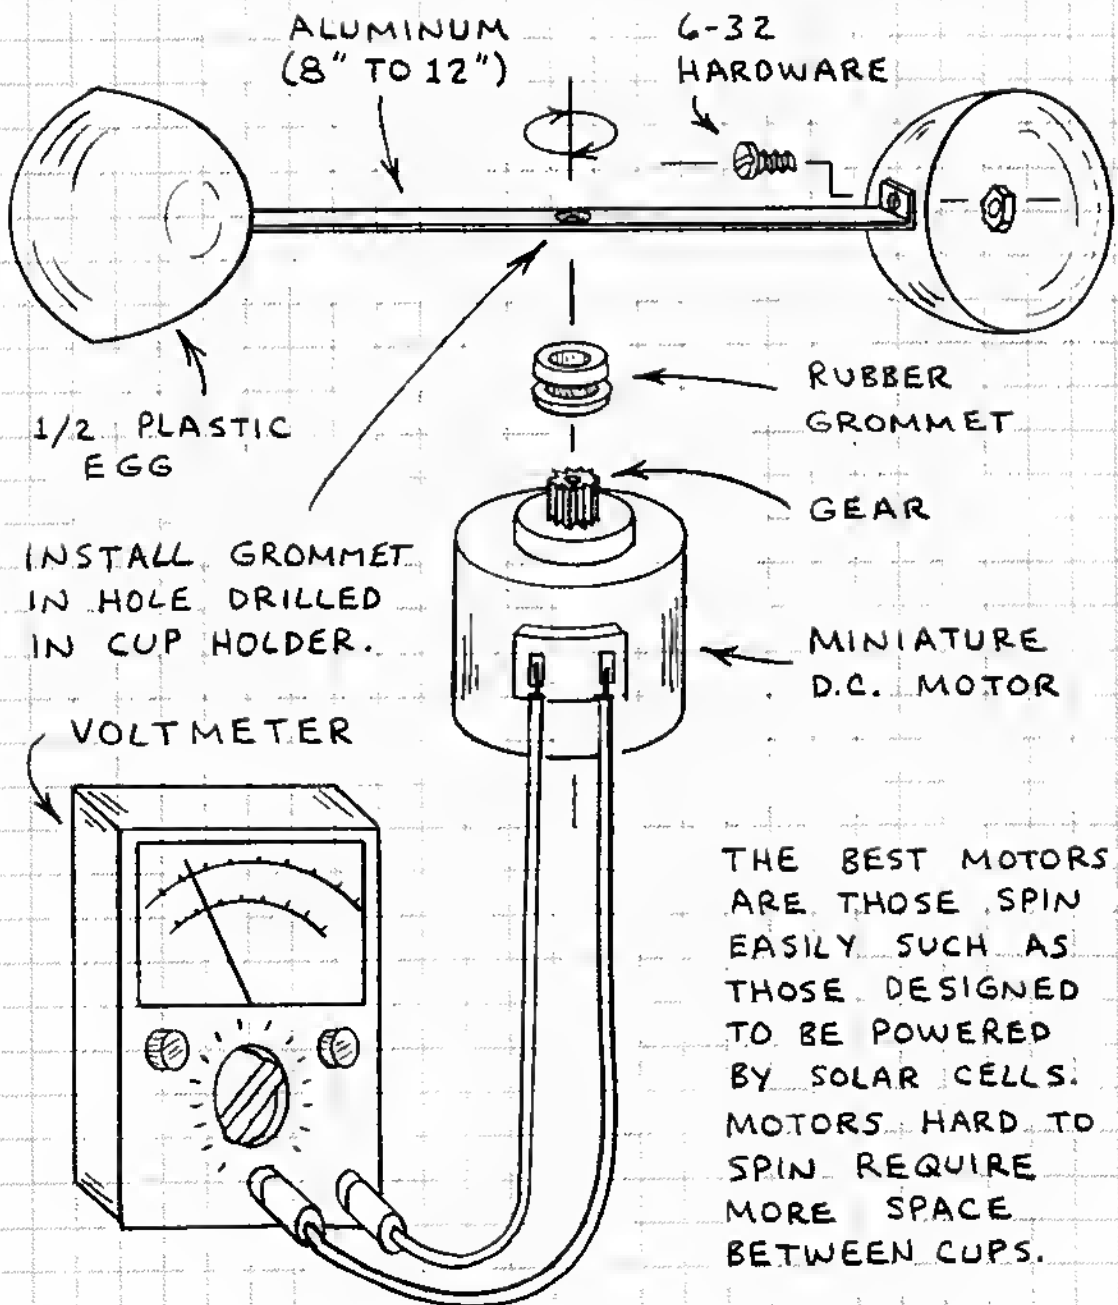 ALUMINUM
(8" TO 12")
6-32
HARDWARE
1/2 PLASTIC
EGG
RUBBER
GROMMET
GEAR
INSTALL GROMMET
IN HOLE DRILLED
IN CUP HOLDER.
MINIATURE
D.C. MOTOR
VOLTMETER
THE BEST MOTORS
ARE THOSE SPIN
EASILY SUCH AS
THOSE DESIGNED
TO BE POWERED
BY SOLAR CELLS.
MOTORS HARD TO
SPIN REQUIRE
MORE SPACE
BETWEEN CUPS.